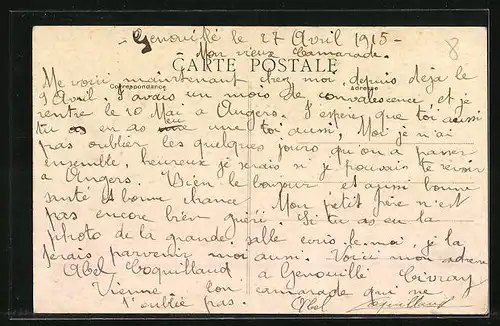 - Genouillé le 27 Avril 1915 -
8
Mon vieux Camarade.
CARTE POSTALE
Correspondance
Adresse
Me voici maintenant chez moi, depuis déjà le
9 Avril. J'avais un mois de convalescence, et je
rentre le 10 Mai a Angers. J'espère que toi aussi
tu en as eu une toi aussi, Moi je n'ai
pas oublier les quelques jours qu'on a passer
ensemble, heureux je serais si je pouvais te revoir
a Angers. Bien le bonjour et aussi bonne
santé et bonne chance. Mon petit frère n'est
pas encore bien guéri. Si tu as eu la
photo de la grande salle ecris le moi, je la
ferais parvenir moi aussi. Voici mon adresse
Abel Coquillaud a Genouillé Civray
Vienne ton camarade qui ne
t'oublie pas. Abel Coquillaud